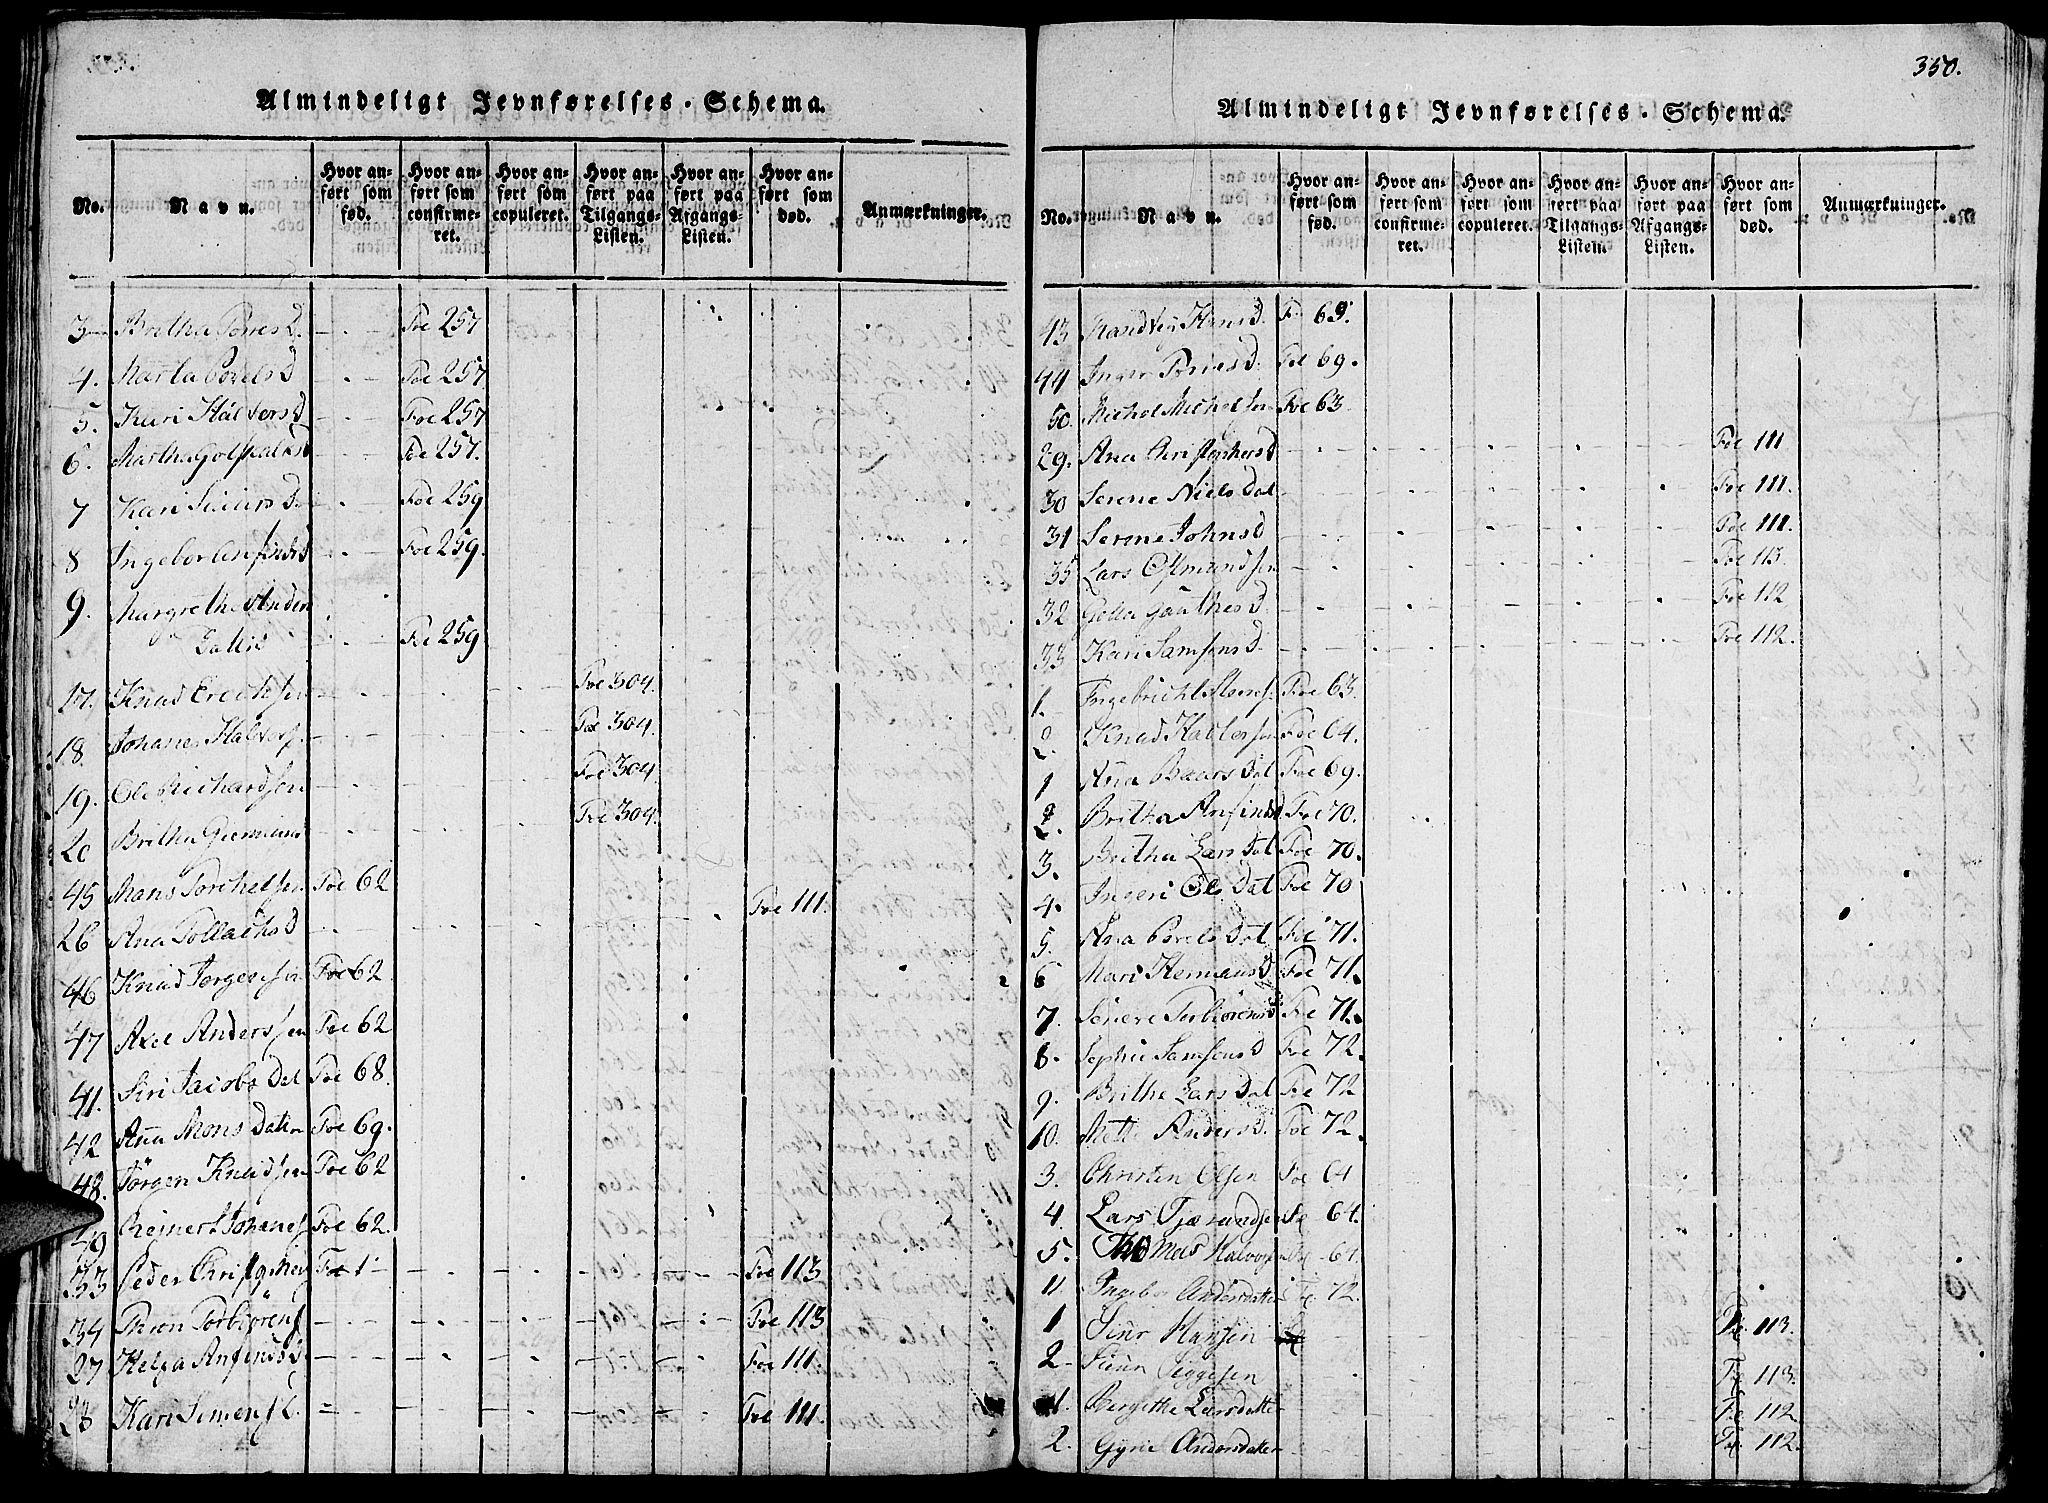 Almindeligt Jevnførelses-Schema.
No. Navn. Hvor anført som fød. Hvor anført som confirmeret. Hvor anført som copuleret. Hvor anført paa Tilgangs-Listen. Hvor anført paa Afgangs-Listen. Hvor anført som død. Anmærkninger.
3 Britha Torres D. Foe 257
4. Marta Povels D Foe 257
5. Kari Halvors D Foe 257
6. Martha Foe 257.
7 Kari D. Foe 259
8 Ingebor Foe 259.
9. Margrethe Anden
Datter Foe 259
17. Knud Erichsen Foe 304.
18. Johanes Halvors. Foe 304.
19. Ole Richardsen Foe 304.
20 Britha Foe 304.
45 Mons Torchelsen Foe 62
26 Ana Tollachs D Foe 111.
46 Knud Torgersen Foe 62
47 Axel Anderssen Foe 62
41. Siri Jacobs Dat Foe 68.
42 Ana Mons Datter Foe 69.
48. Jörgen Knudsen Foe 62
49 Reinert Johanes Foe 62.
33 Peder Foe 1 Foe 113
34 Thron Torbiörens Foe 113
27 Helga Anfinds D. Foe 111.
28 Kari Simens D. Foe 111.
350.
Almindeligt Jevnførelses-Schema.
No. Navn. Hvor anført som fød. Hvor anført som confirmeret. Hvor anført som copuleret. Hvor anført paa Tilgangs-Listen. Hvor anført paa Afgangs-Listen. Hvor anført som død. Anmærkninger.
43 Randveg Hans D. Foe 69.
44 Inger Torres D. Foe 69.
50. Michel Michelsen Foe 63.
29. Ana Christophers D Foe 111
30 Serene Niels Dat Foe 111.
31 Serene Johns D Foe 111.
35 Lars Osmundsen Foe 113.
32 Golla Gauthes D. Foe 112
33 Kari Samsons D. Foe 112.
1. Ingebricht Foe 63.
2 Knud Halvorsen Foe 64.
1 Ana Baars Dat Foe 69.
2. Britha Anfinds D Foe 70.
3. Britha Lars Dat Foe 70.
4. Ingeri Ols Dat Foe 70
5. Ana Povels Dat Foe 71.
6 Mari Hermans D Foe 71.
7. Torbiörens D Foe 71.
8. Sophie Samsons D Foe 72.
9. Brithe Lars Dat Foe 72
10. Mette Anders D. Foe 72.
3. Christen Olsen Foe 64
4. Lars Tjerandsen Fol 64.
5. Thomas Halvorsen Fol 64
11. Ingebor Andersdatter Fol 72.
1 Einer Hansen Fol 113.
2 Siggesen Fol 113.
1. Bergithe Larsdatter Fol 112
2. Gyrie Andersdatter Fol 112.